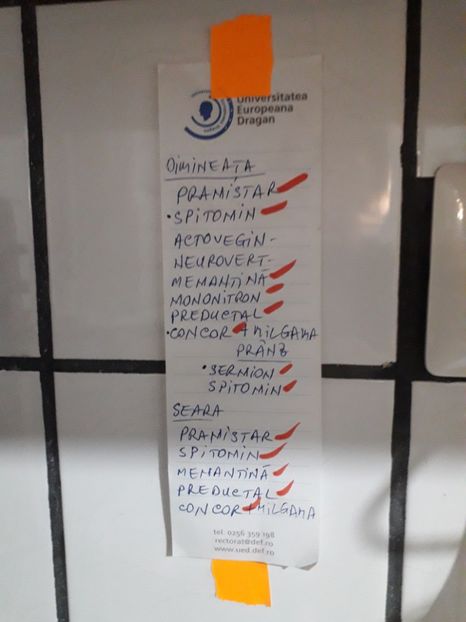 Universitatea
Europeana
Dragan
DIMINEAȚA
PRAMISTAR
•SPITOMIN
ACTOVEGIN-
NEUROVERT-
MEMANTINĂ
MONONITRON
PREDUCTAL
•CONCOR + MILGAMA
PRÂNZ
•SERMION
SPITOMIN
SEARA
PRAMISTAR
SPITOMIN
MEMANTINĂ
PREDUCTAL
CONCOR + MILGAMA
tel. 0256 359 198
rectorat@def.ro
www.ued.def.ro